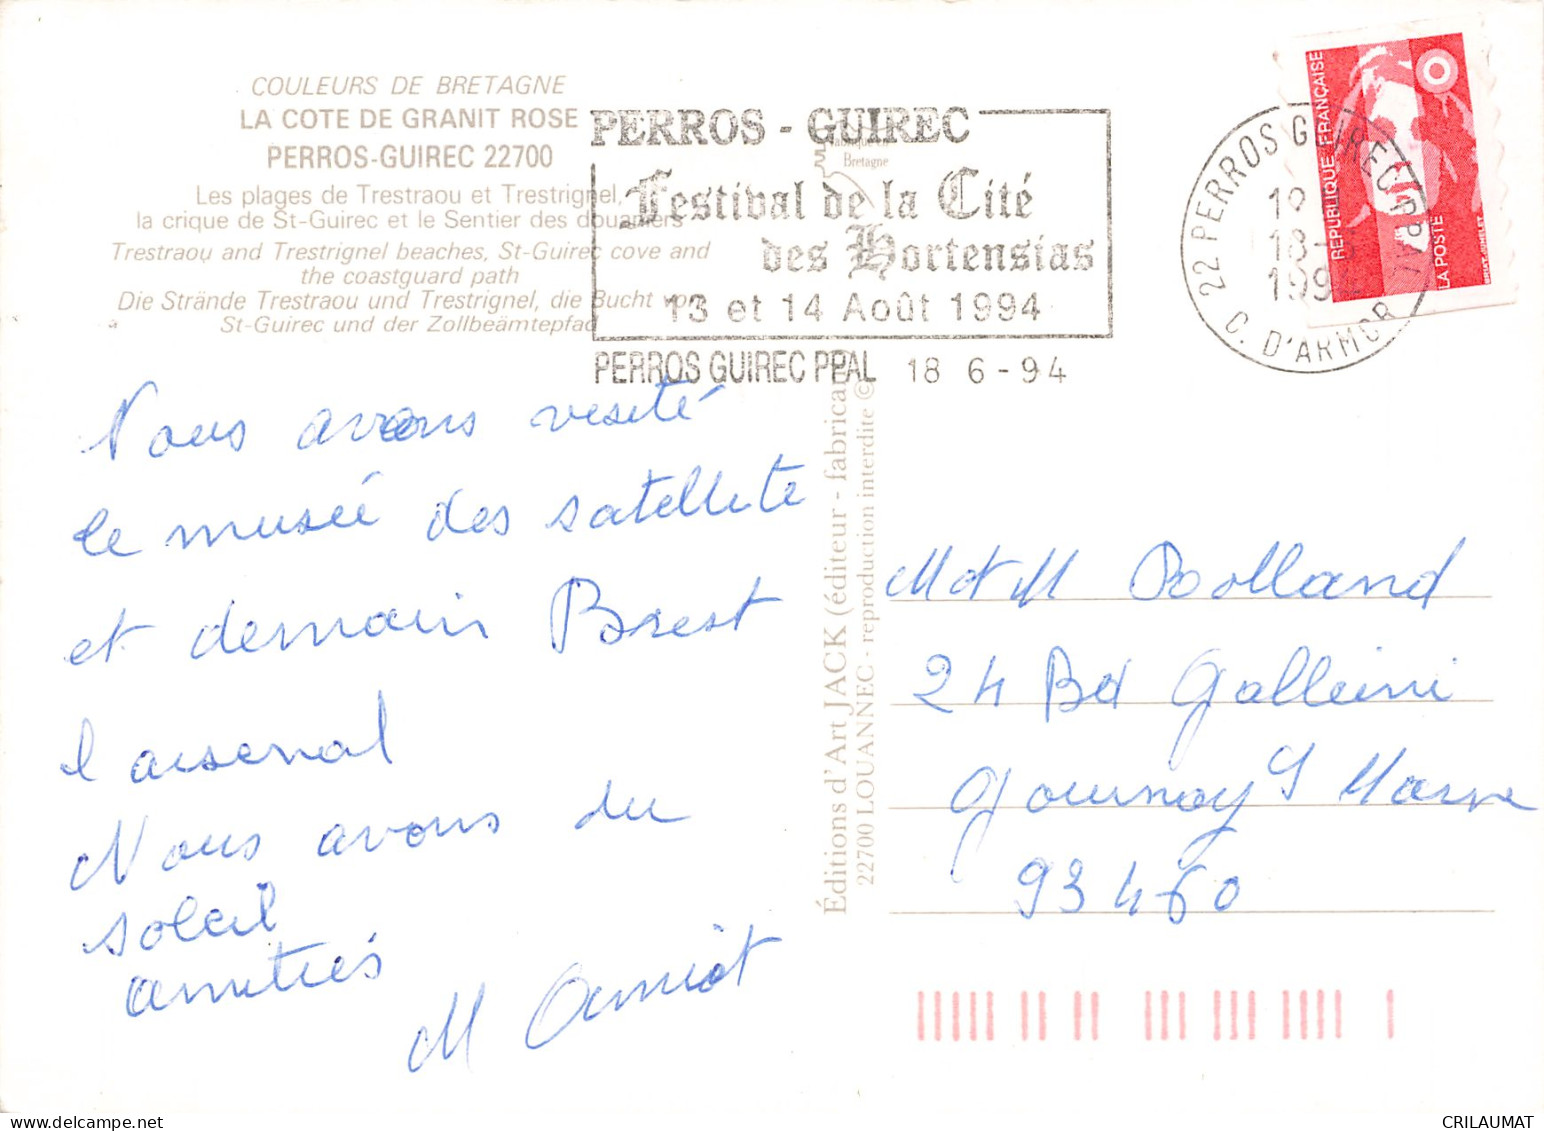 COULEURS DE BRETAGNE
LA COTE DE GRANIT ROSE
PERROS-GUIREC 22700
Les plages de Trestraou et Trestrignel,
la crique de St-Guirec et le Sentier des douaniers
Trestraou and Trestrignel beaches, St-Guirec cove and
the coastguard path
Die Strände Trestraou und Trestrignel, die Bucht von
St-Guirec und der Zollbeämtepfad
PERROS - GUIREC
Bretagne
Festival de la Cité
des Hortensias
13 et 14 Août 1994
PERROS GUIREC PPAL 18 6-94
22 PERROS GUIREC PPAL
18-6
1994
C. D'ARMOR
REPUBLIQUE FRANÇAISE
LA POSTE
Nous avons vesité
le musée des satellite
et demain Brest
l arsenal
Nous avons du
soleil
amitiés
M Amiot
Éditions d'Art JACK (éditeur - fabricant)
22700 LOUANNEC - reproduction interdite ©
M et M Rolland
24 Bd Gallieni
Gournay S Marne
93460
CRILAUMAT